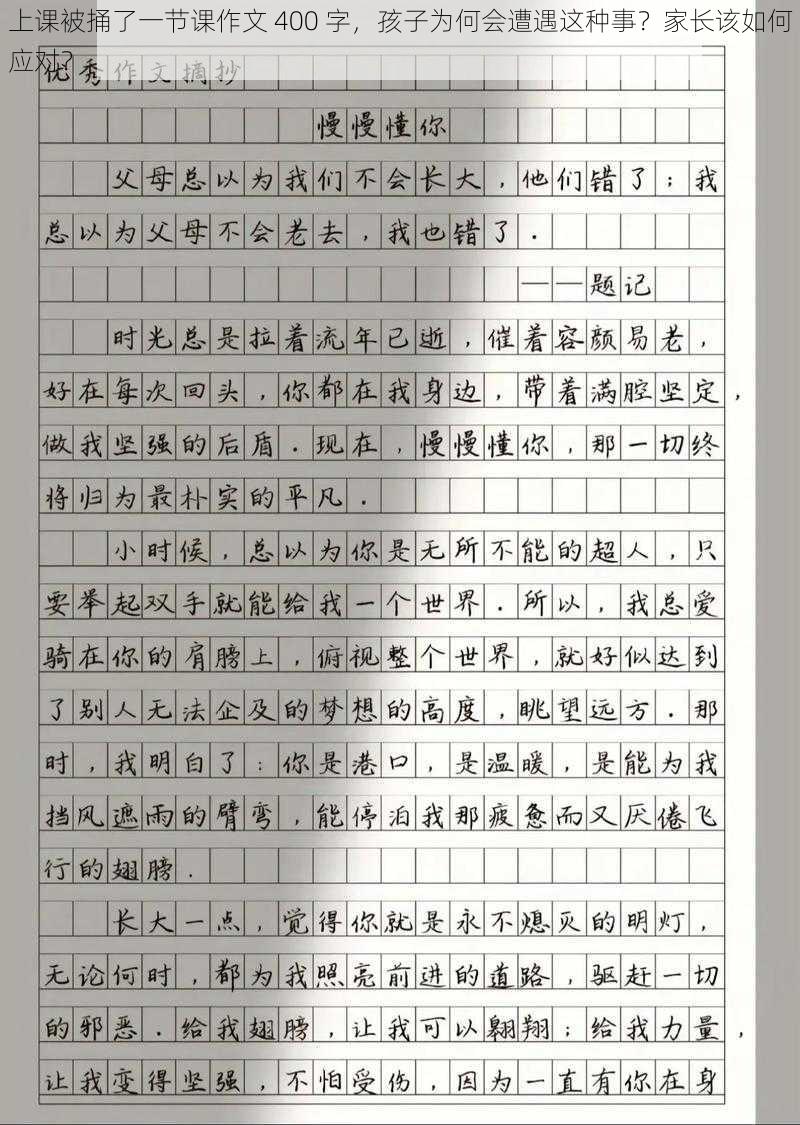 上课被捅了一节课作文 400 字，孩子为何会遭遇这种事？家长该如何
应对？
优秀作文摘抄
慢慢懂你
父母总以为我们不会长大，他们错了；我
总以为父母不会老去，我也错了．
——题记
时光总是拉着流年已逝，催着容颜易老，
好在每次回头，你都在我身边，带着满腔坚定，
做我坚强的后盾．现在，慢慢懂你，那一切终
将归为最朴实的平凡．
小时候，总以为你是无所不能的超人，只
要举起双手就能给我一个世界．所以，我总爱
骑在你的肩膀上，俯视整个世界，就好似达到
了别人无法企及的梦想的高度，眺望远方．那
时，我明白了：你是港口，是温暖，是能为我
挡风遮雨的臂弯，能停泊我那疲惫而又厌倦飞
行的翅膀．
长大一点，觉得你就是永不熄灭的明灯，
无论何时，都为我照亮前进的道路，驱赶一切
的邪恶．给我翅膀，让我可以翱翔；给我力量，
让我变得坚强，不怕受伤，因为一直有你在身